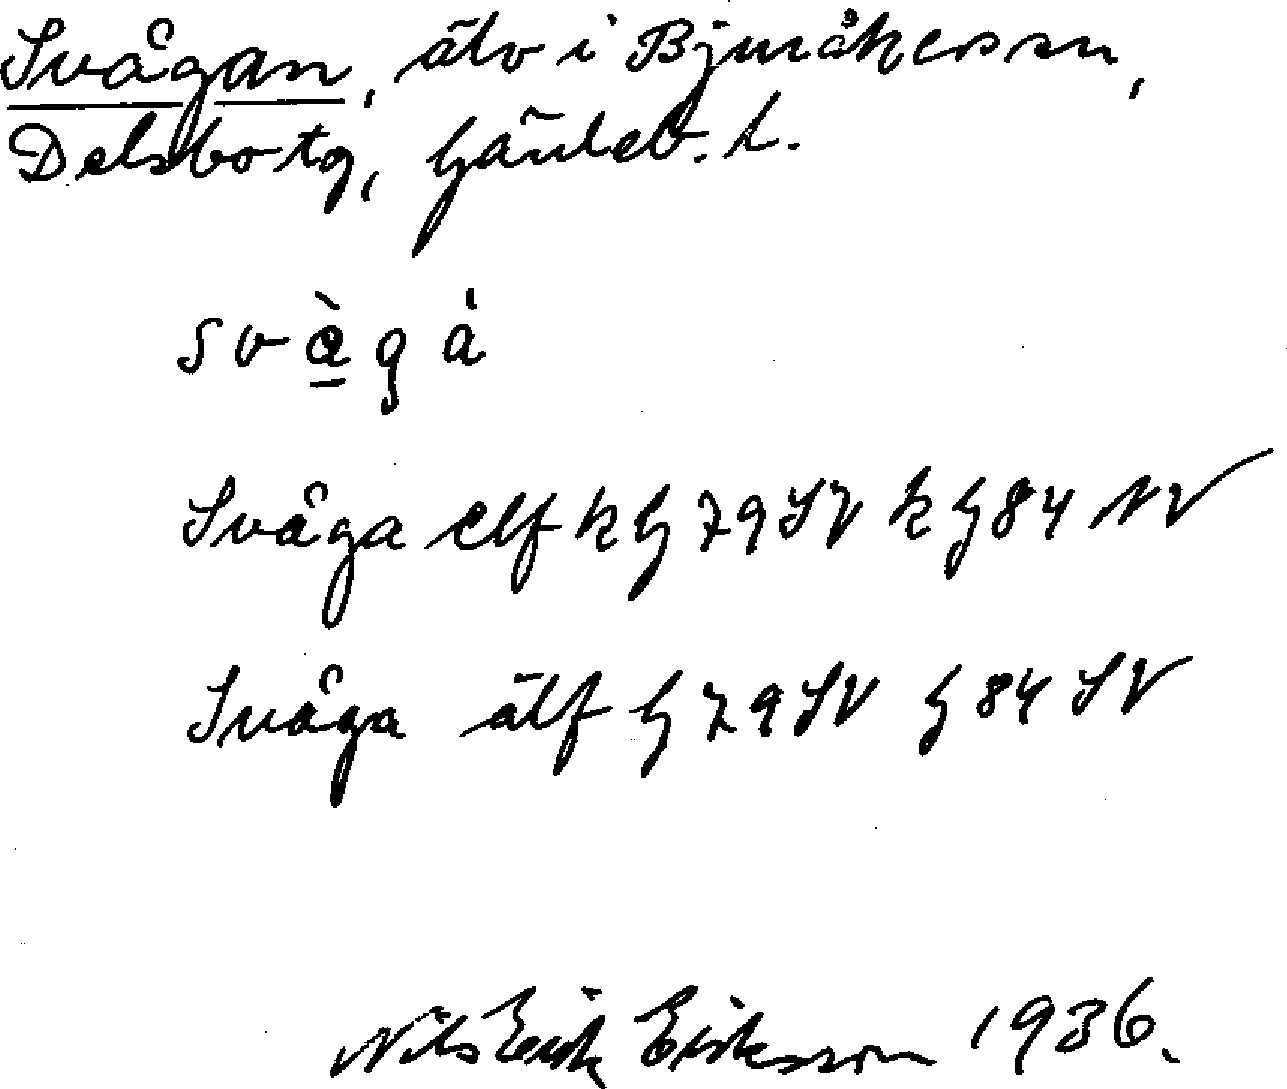 Svågan, älv i Bjuråkers sn,
Delsbo tg, Gävleb. l.
svàgá
Svåga elf k G 79 SV k G 84 NV
Svåga älf G 79 SV G 84 SV
Nils Erik Eriksson 1936.